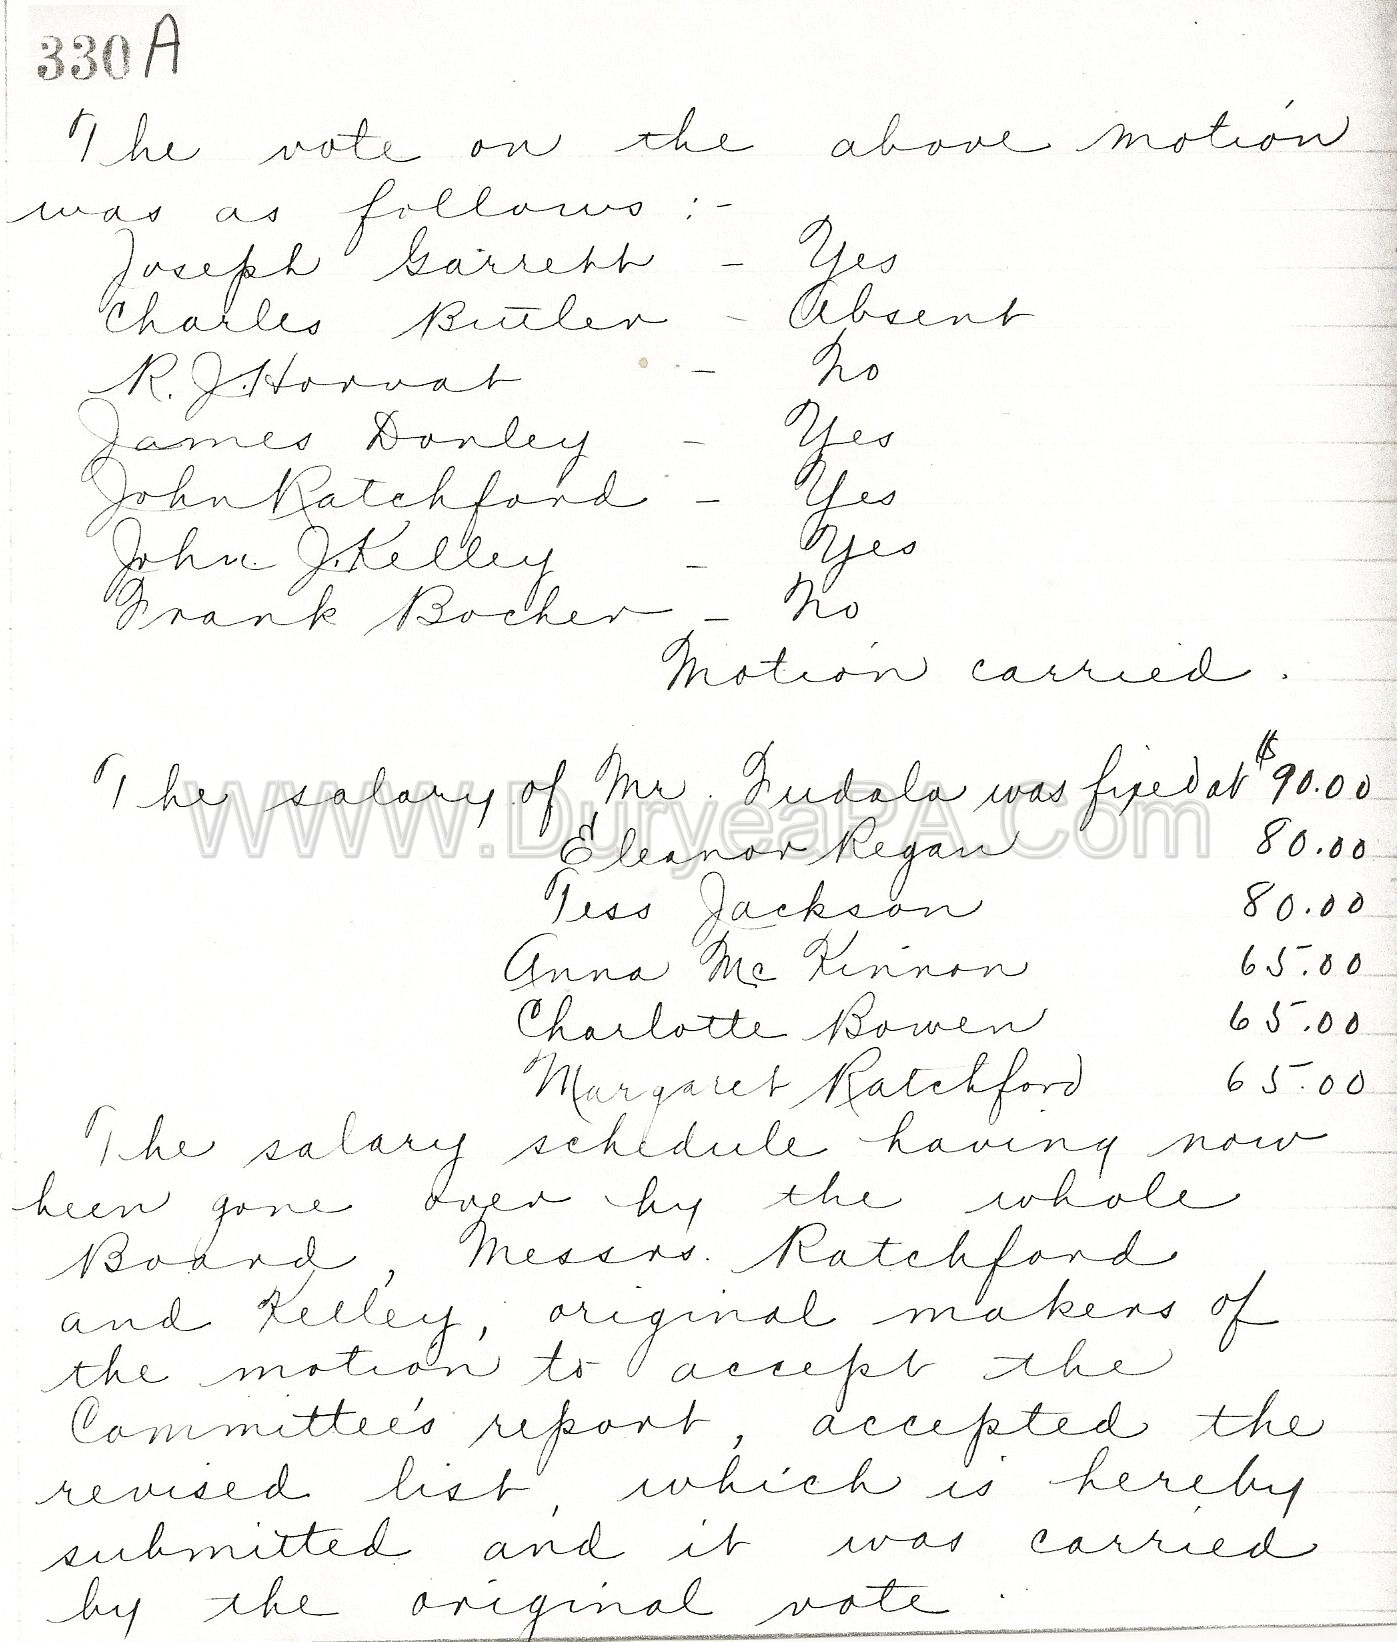 330 A
The vote on the above motion
was as follows :-
Joseph Garrett - Yes
Charles Butler - Absent
R. J. Horvat - No
James Donley - Yes
John Ratchford - Yes
John J. Kelley - Yes
Frank Bocher - No
Motion carried.
The salary of Mr. Fudala was fixed at $90.00
WWW.DuryeaPA.Com
Eleanor Regan 80.00
Tess Jackson 80.00
Anna Mc Kinnon 65.00
Charlotte Bowen 65.00
Margaret Ratchford 65.00
The salary schedule having now
been gone over by the whole
Board, Messrs. Ratchford
and Kelley, original makers of
the motion to accept the
Committee's report, accepted the
revised list, which is hereby
submitted and it was carried
by the original vote.